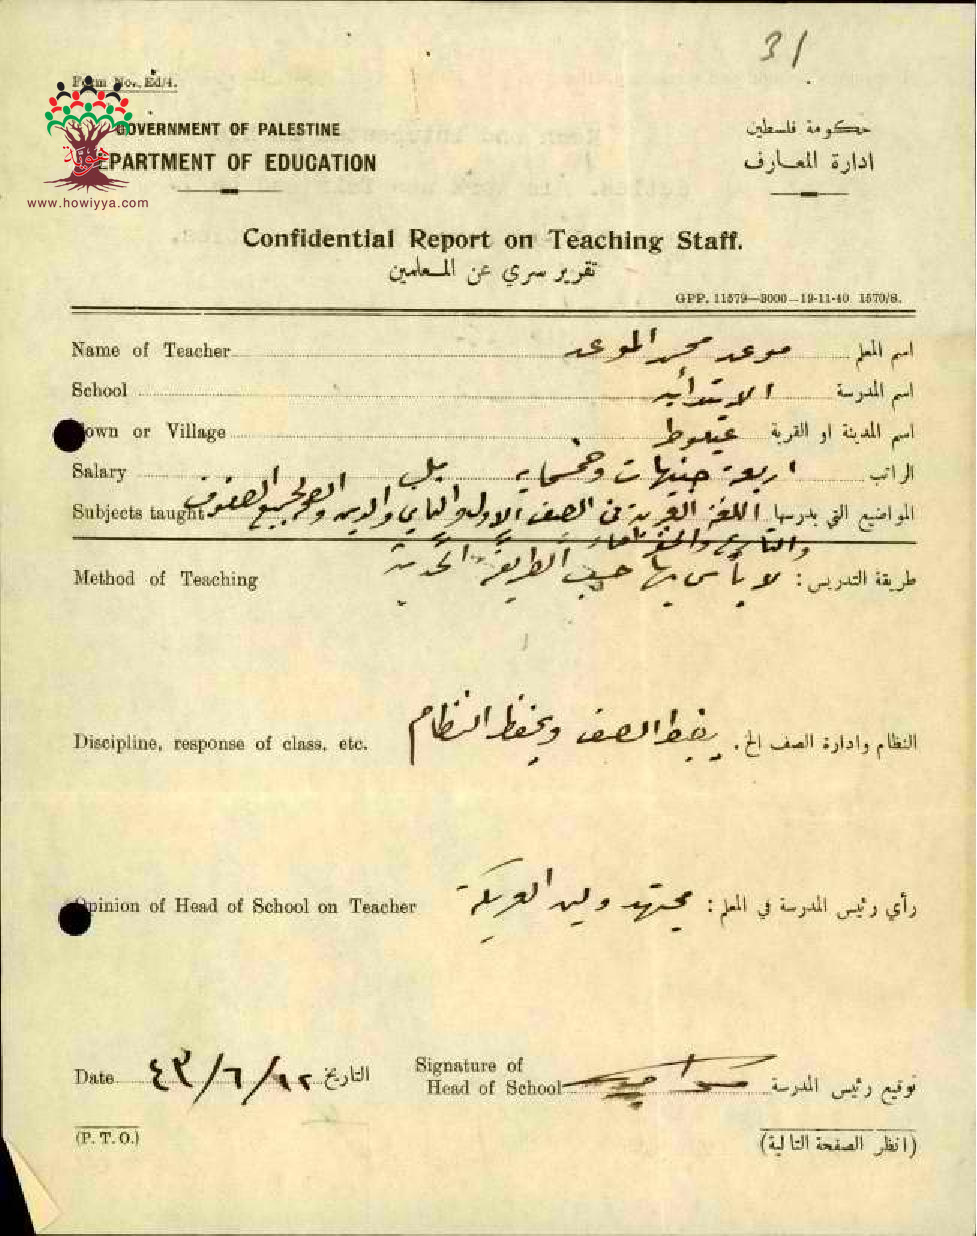 31
Form No. Ed/4.
GOVERNMENT OF PALESTINE
حكومة فلسطين
DEPARTMENT OF EDUCATION
ادارة المعارف
هوية
www.howiyya.com
Confidential Report on Teaching Staff.
تقرير سري عن المعلمين
GPP. 11579—3000—19-11-40 1570/S.
Name of Teacher موعد محمد الموعد اسم المعلم
School الابتدائية اسم المدرسة
Town or Village عيلوط اسم المدينة او القرية
Salary اربعة جنيهات وخمسماية مل الراتب
Subjects taught اللغة العربية في الصف الاول والثاني والدين والصحة لجميع الصفوف المواضيع التي يدرسها
Method of Teaching لا بأس بها حسب الطريقة الحديثة طريقة التدريس :
Discipline, response of class, etc. يضبط الصف ويحفظ النظام النظام وادارة الصف الخ.
Opinion of Head of School on Teacher مجتهد ولين العريكة رأي رئيس المدرسة في المعلم :
Date ٤٣/٦/١٢ التاريخ
Signature of Head of School توقيع رئيس المدرسة
(P. T. O.)
(انظر الصفحة التالية)